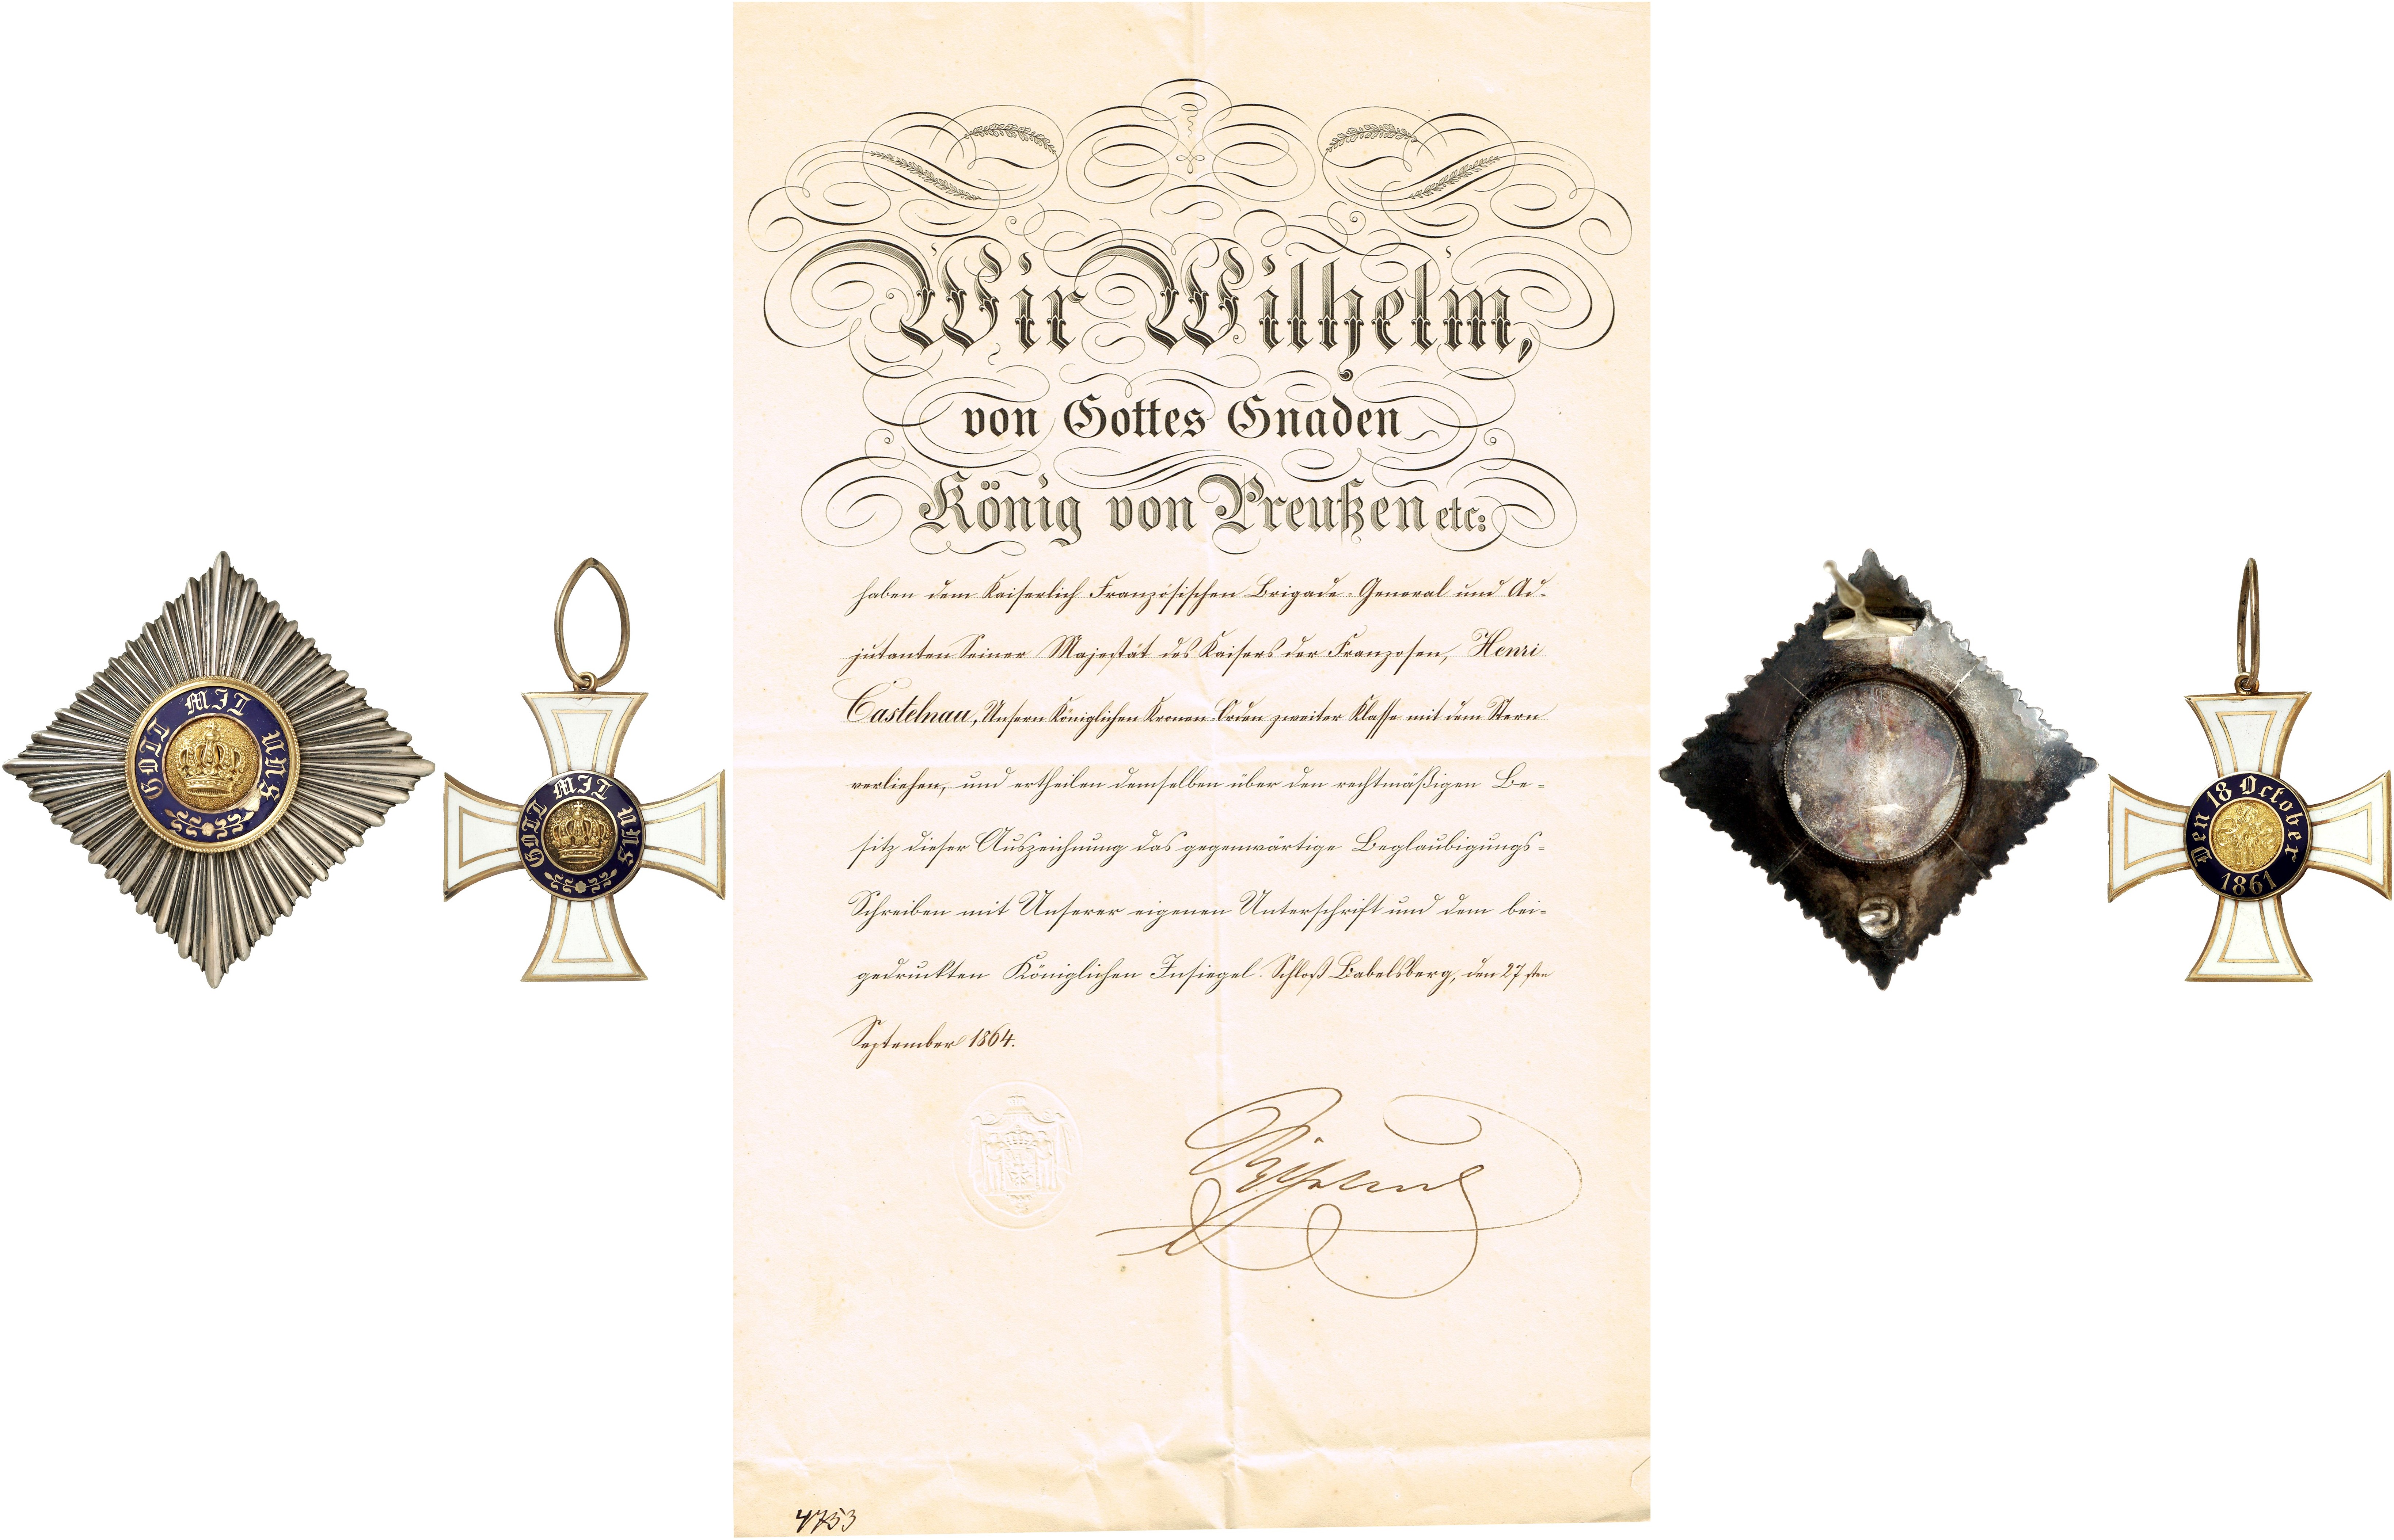 GOTT MIT UNS
GOTT MIT UNS
Wir Wilhelm,
von Gottes Gnaden
König von Preußen etc:
haben dem Kaiserlich Französischen Brigade-General und Ad-
jutanten Seiner Majestät des Kaisers der Franzosen, Henri
Castelnau, Unsern Königlichen Kronen-Orden zweiter Klasse mit dem Stern
verliehen, und ertheilen demselben über den rechtmäßigen Be-
sitz dieser Auszeichnung das gegenwärtige Beglaubigungs-
Schreiben mit Unserer eigenen Unterschrift und dem bei-
gedruckten Königlichen Insiegel. Schloß Babelsberg, den 27sten
September 1864.
Wilhelm
4753
Den 18 October
1861